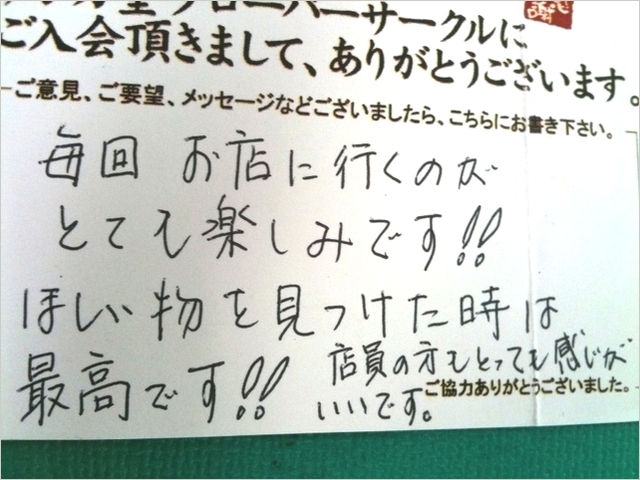 クローバーサークルに
ご入会頂きまして、ありがとうございます。
ご意見、ご要望、メッセージなどございましたら、こちらにお書き下さい。
毎回 お店に行くのが
とても楽しみです!!
ほしい物を見つけた時は
最高です!!
店員の方もとっても感じが
いいです。
ご協力ありがとうございました。